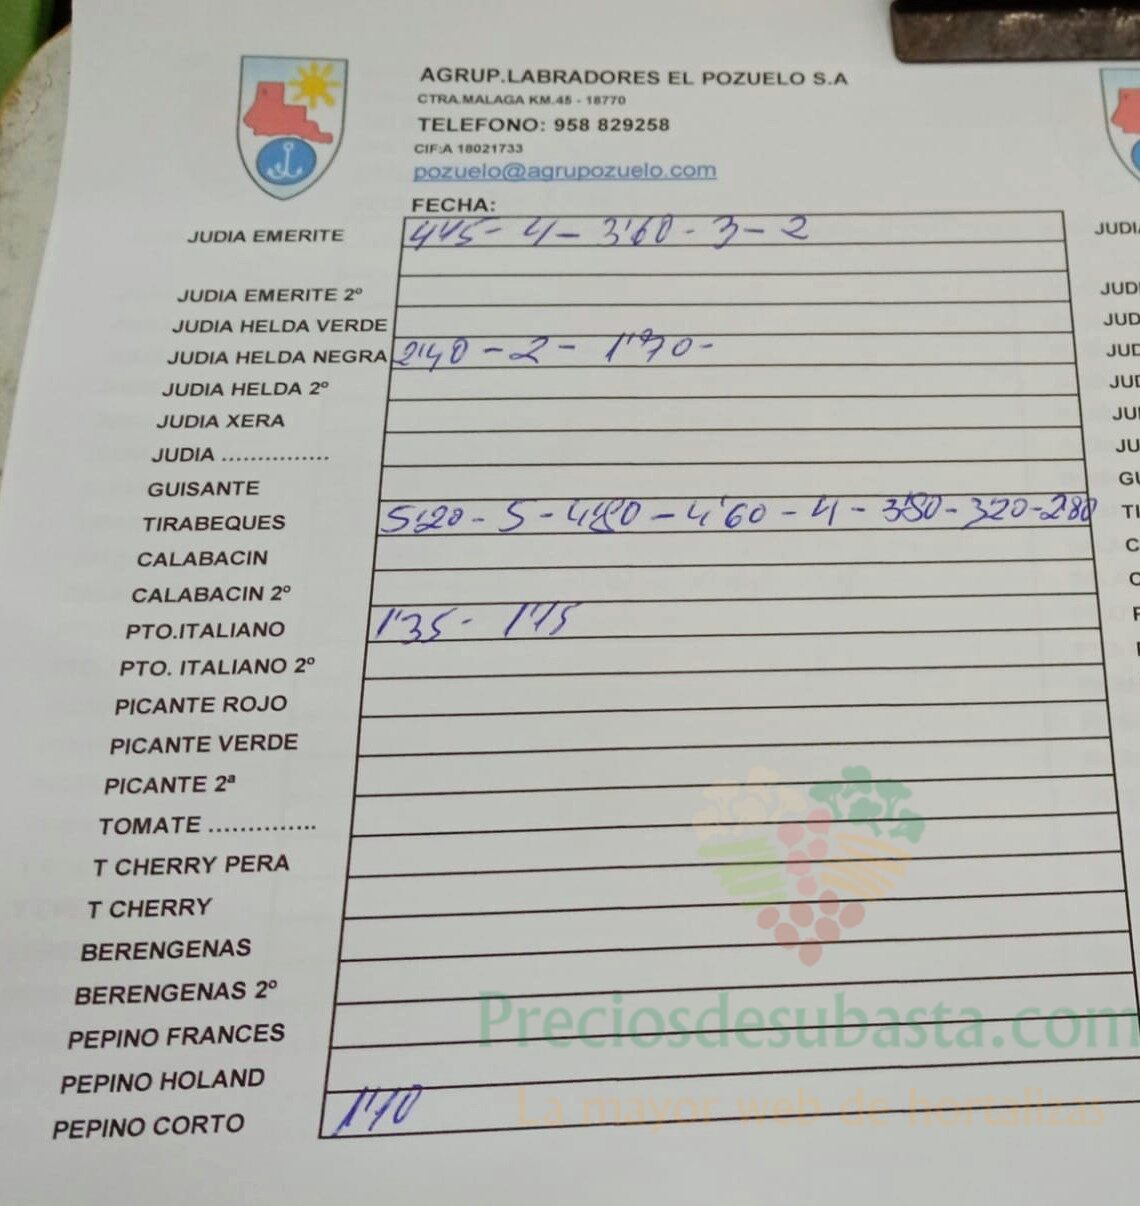 AGRUP.LABRADORES EL POZUELO S.A
CTRA.MALAGA KM.45 - 18770
TELEFONO: 958 829258
CIF:A 18021733
pozuelo@agrupozuelo.com
FECHA:
JUDIA EMERITE 4'45 - 4 - 3'60 - 3 - 2
JUDIA EMERITE 2º
JUDIA HELDA VERDE
JUDIA HELDA NEGRA 2'40 - 2 - 1'70 -
JUDIA HELDA 2º
JUDIA XERA
JUDIA ...............
GUISANTE
TIRABEQUES 5'20 - 5 - 4'80 - 4'60 - 4 - 3'50 - 3'20 - 2'80
CALABACIN
CALABACIN 2º
PTO.ITALIANO 1'35 - 1'15
PTO. ITALIANO 2º
PICANTE ROJO
PICANTE VERDE
PICANTE 2ª
TOMATE ..............
T CHERRY PERA
T CHERRY
BERENGENAS
BERENGENAS 2º
PEPINO FRANCES
PEPINO HOLAND
PEPINO CORTO 1'10
Preciosdesubasta.com
La mayor web de hortalizas